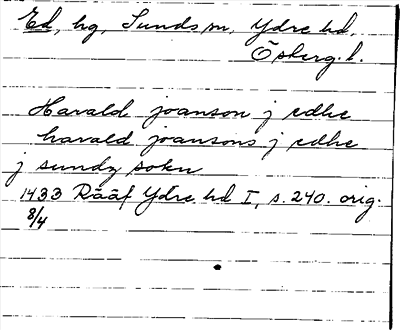 Ed, hg, Sunds sn, Ydre hd,
Österg. l.
Harald joanson j edhe
harald joansons j edhe
j sundz sokn
1433 Rääf Ydre hd I, s. 240. orig.
8/4